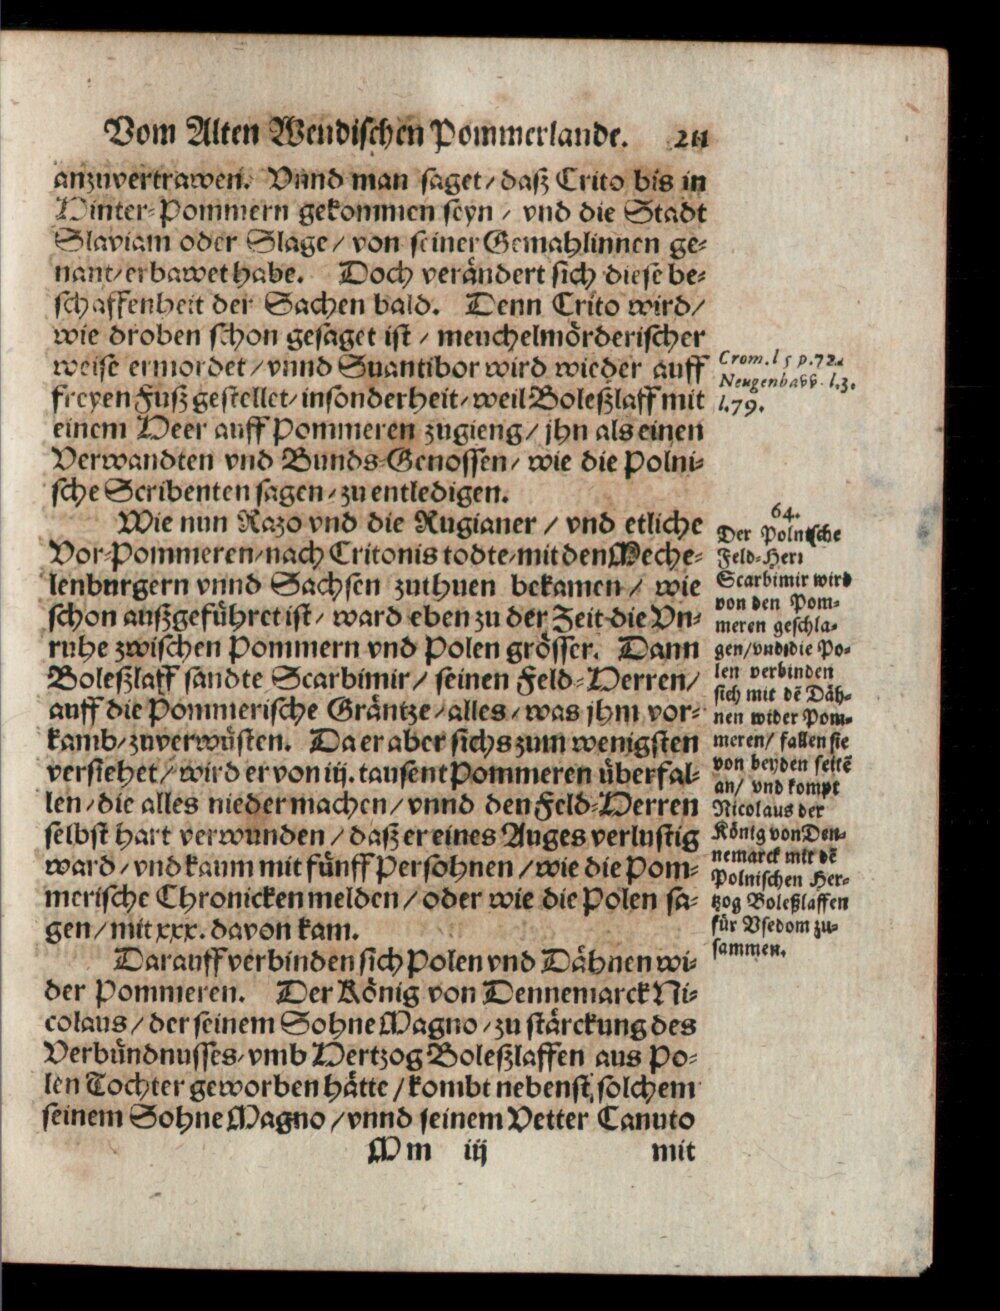 Vom Alten Wendischen Pommerlande. 211
anzuvertrawen. Vnnd man saget/ daß Crito bis in
Hinter-Pommern gekommen seyn / vnd die Stadt
Slaviam oder Slage/ von seiner Gemahlinnen ge-
nant/ erbawet habe. Doch verändert sich diese be-
schaffenheit der Sachen bald. Denn Crito wird/
wie droben schon gesaget ist / meuchelmörderischer
weise ermordet / vnnd Suantibor wird wieder auff
freyen Fuß gestellet/ insonderheit/ weil Boleßlaff mit
einem Heer auff Pommeren zugieng/ jhn als einen
Verwandten vnd Bunds-Genossen/ wie die Polni-
sche Scribenten sagen/ zu entledigen.
Crom. l 5 p. 72.
Neugenbavv. l. 3.
l. 79.
Wie nun Razo vnd die Rugianer / vnd etliche
Vor-Pommeren/ nach Critonis todte/ mit den Meche-
lenburgern vnnd Sachsen zuthuen bekamen / wie
schon außgeführet ist/ ward eben zu der Zeit die Vn-
ruhe zwischen Pommern vnd Polen grösser. Dann
Boleßlaff sandte Scarbimir/ seinen Feld-Herren/
auff die Pommerische Gräntze/ alles/ was jhm vor-
kamb/ zuverwüsten. Da er aber sichs zum wenigsten
versiehet/ wird er von iij. tausent Pommeren überfal-
len/ die alles niedermachen/ vnnd den Feld-Herren
selbst hart verwunden / daß er eines Auges verlustig
ward/ vnd kaum mit fünff Persohnen / wie die Pom-
merische Chronicken melden/ oder wie die Polen sa-
gen/ mit xxx. davon kam.
64.
Der Polnische
Feld-Herr
Scarbimir wird
von den Pom-
meren geschla-
gen/ vnd die Po-
len verbinden
sich mit dē Däh-
nen wider Pom-
meren/ fallen sie
von beyden seitē
an/ vnd kompt
Nicolaus der
König von Den-
nemarck mit dē
Polnischen Her-
tzog Boleßlaffen
für Vsedom zu-
sammen.
Darauff verbinden sich Polen vnd Dähnen wi-
der Pommeren. Der König von Dennemarck Ni-
colaus/ der seinem Sohne Magno/ zu stärckung des
Verbündnusses/ vmb Hertzog Boleßlaffen aus Po-
len Tochter geworben hätte / kombt nebenst solchem
seinem Sohne Magno / vnnd seinem Vetter Canuto
Mm iij mit